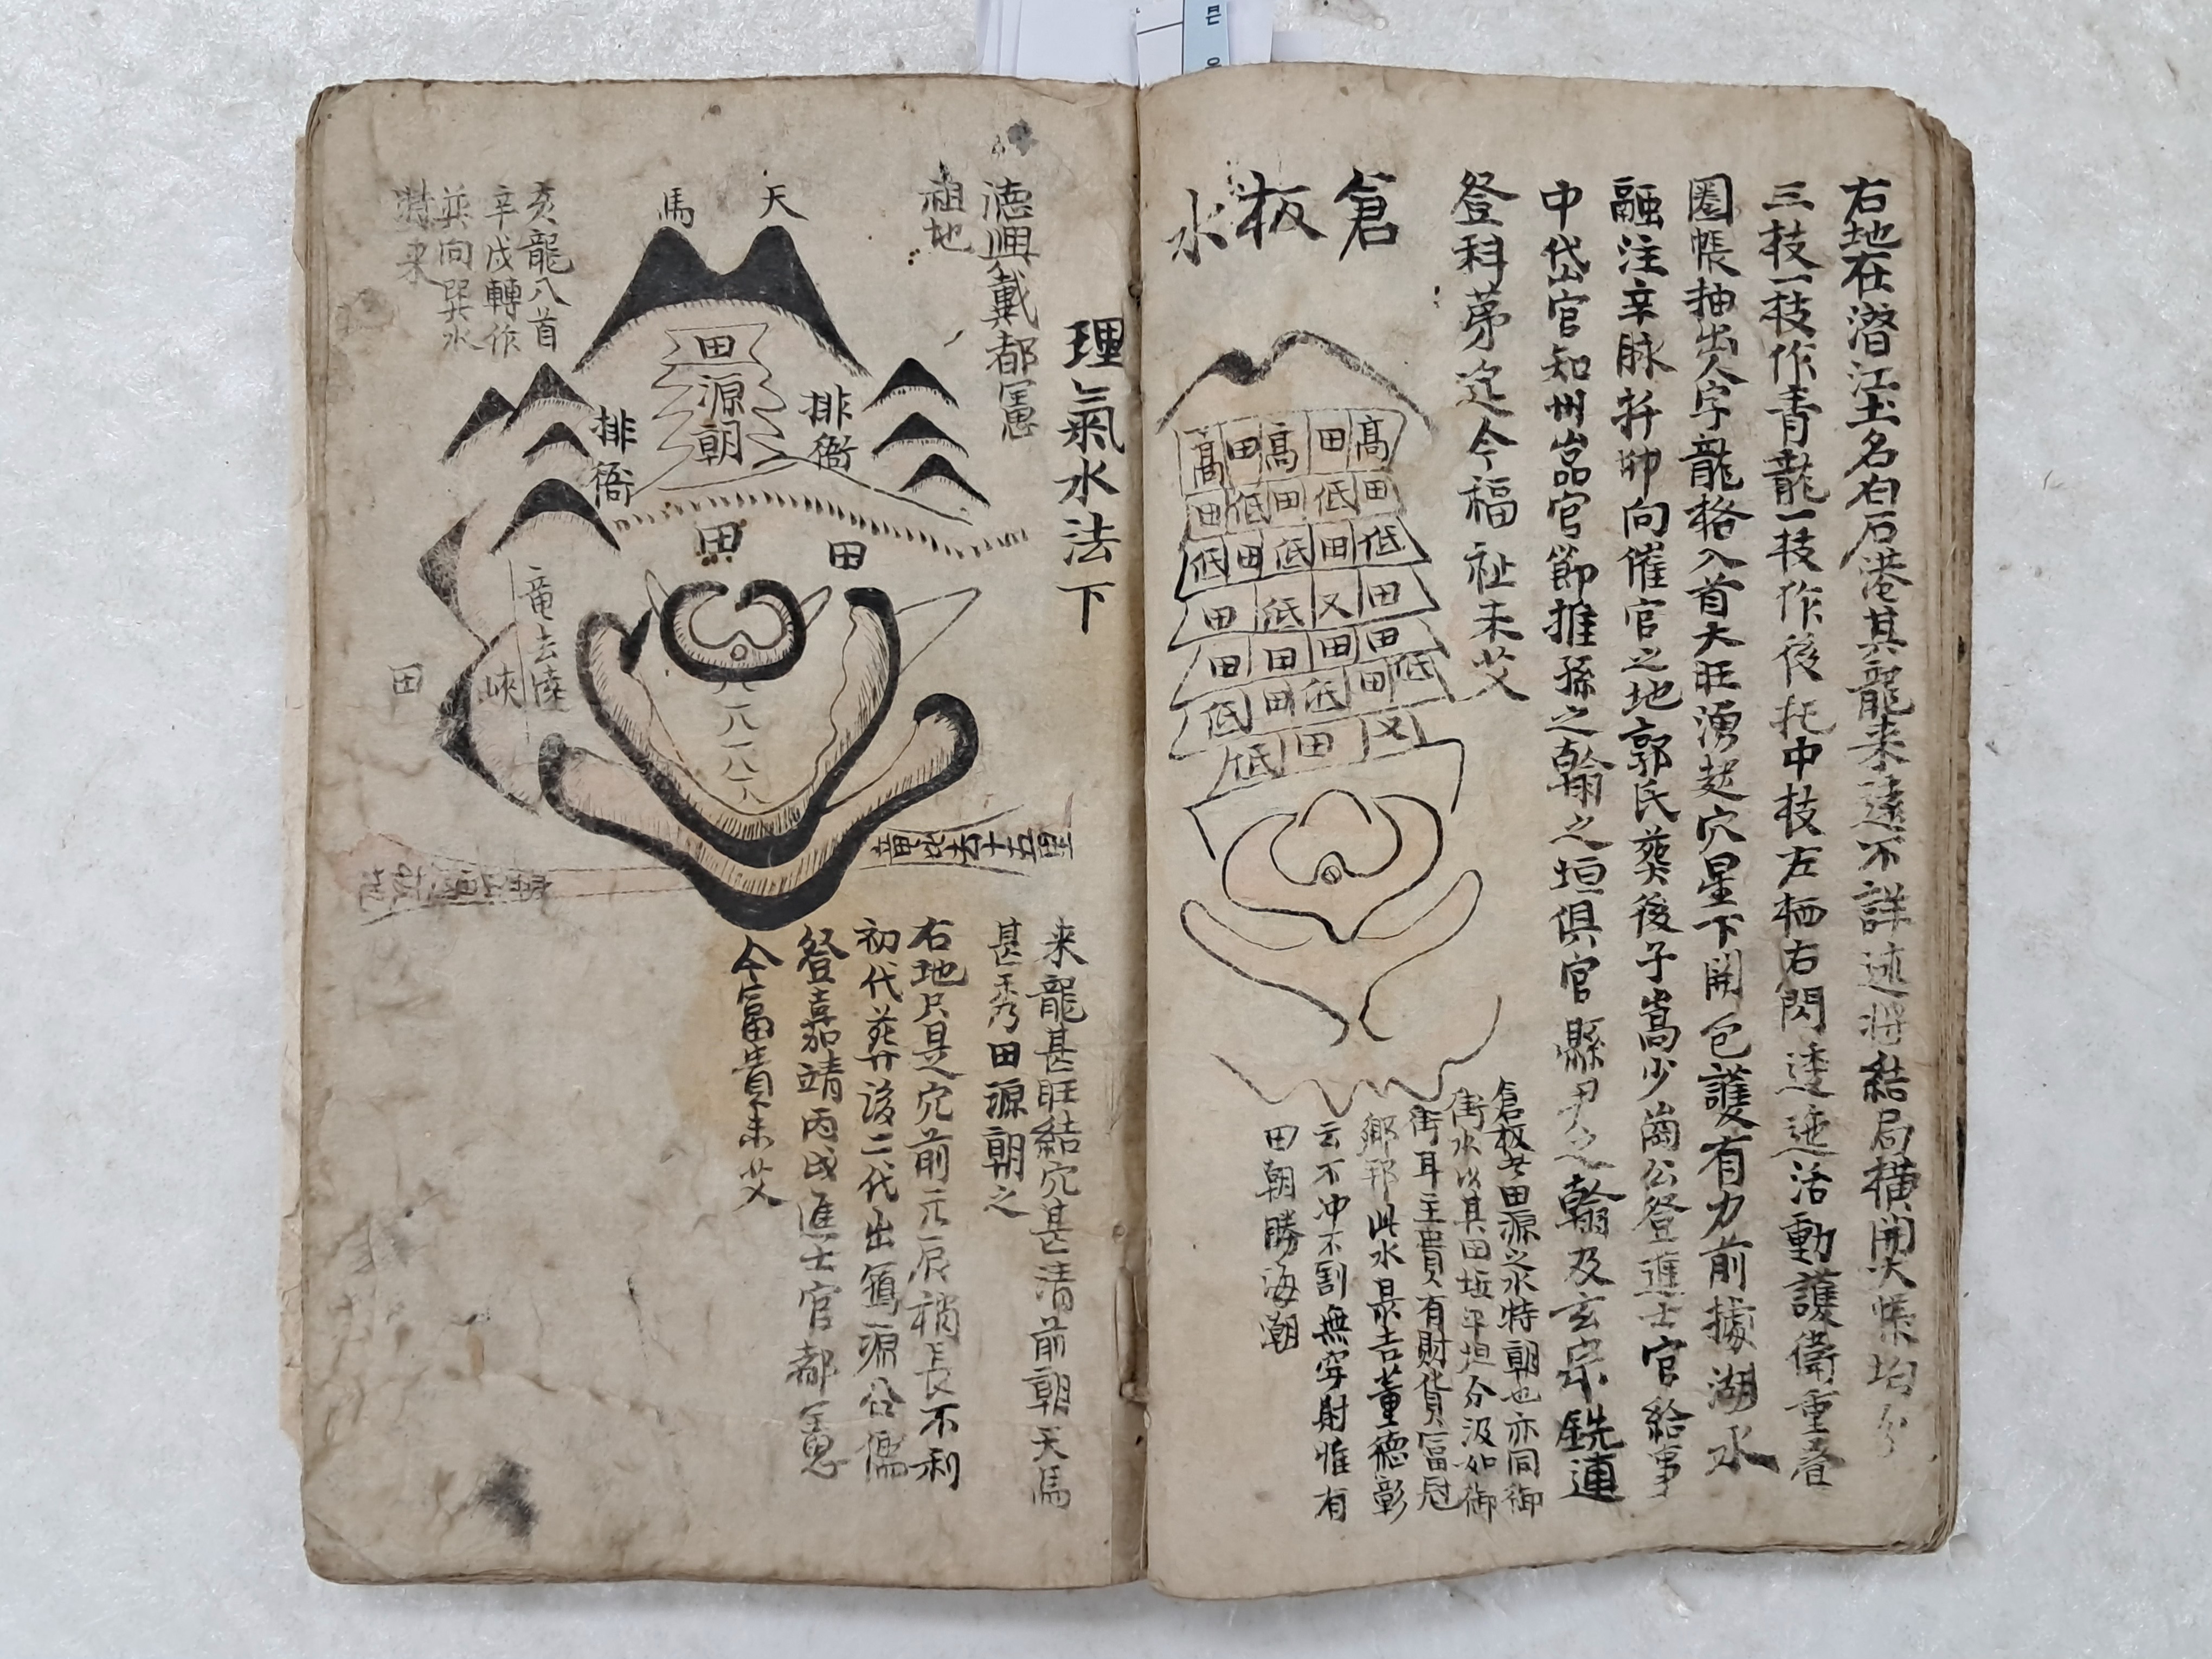 右地在潛江土名白石港其龍来遠不詳述將結局橫開大帳均分
三枝一枝作青龍一枝作後托中枝左栖右閃逶迤活動護衛重叠
圈帳抽出人字龍格入首大旺湧起穴星下開包護有力前據湖水
融注辛脉扦卯向催官之地郭氏葵後子嵩少崗公登進士官給事
中代出官知州嵓官節推孫之翰之垣俱官縣尹之翰及玄宗銑連
登科苐迄今福祉未艾
倉板水
高田高田高
田低田低田
低田低田低
田低又田
田田田田
低田低田低
低田又
倉板者田源之水特朝也亦同御
街水以其田坵平坦分汲如御
街耳主貴有財貨富冠
鄉邦此水最吉董德彰
云不冲不割無穿射惟有
田朝勝海潮
理氣水法下
德興戴都憲
祖地
天馬
田源朝
排衙
排衙
亥龍入首
辛戌轉作
巽向巽水
特来
田
田
田
竜去陸
峽
来龍甚旺結穴甚清前朝天馬
甚秀田源朝之
右地只是穴前元辰稍長不利
初代葬後二代出
登嘉靖丙戌進士官都憲
今富貴未艾